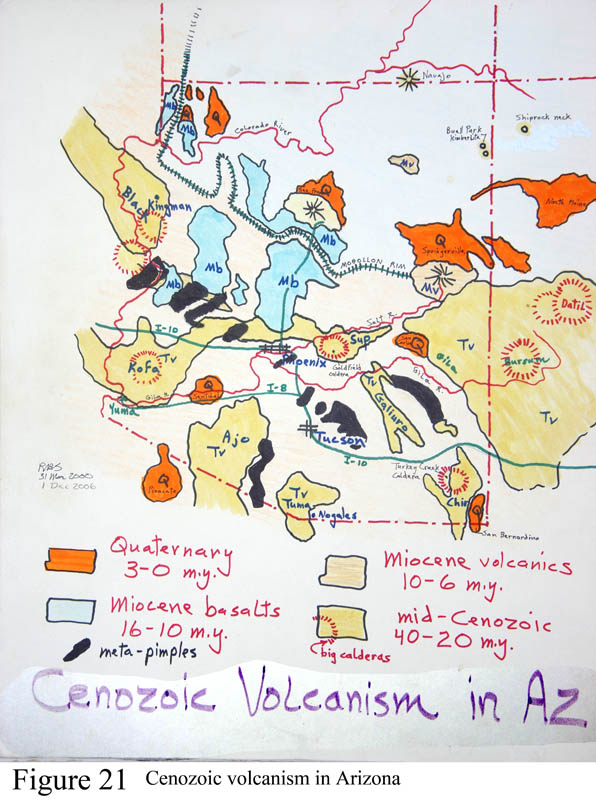 Navajo
Colorado River
Mb
Mb
Q
Shiprock neck
Buell Park
Kimberlite
Mv
Black
Kingman
Q
Mb
Mb
Mb
Mb
Q
Springerville
Mv
MOGOLLON RIM
Datil
Salt R.
I-10
Tv
Kofa
Phoenix
Sup
Goldfield
caldera
Q
Gila
Tv
Bursum
Gila R.
I-8
Q
Yuma
Gila R.
Tv
Galiuro
Tv
Ajo
Tv
Tucson
I-10
Turkey Creek
Caldera
Chir
RBS
31 Mar 2000
1 Dec 2006
Q
Pinacate
Tv
Tuma
Nogales
Q
San Bernardino
Quaternary
3-0 m.y.
Miocene volcanics
10-6 m.y.
Miocene basalts
16-10 m.y.
mid-Cenozoic
40-20 m.y.
meta-pimples
big calderas
Cenozoic Volcanism in Az
Figure 21 Cenozoic volcanism in Arizona